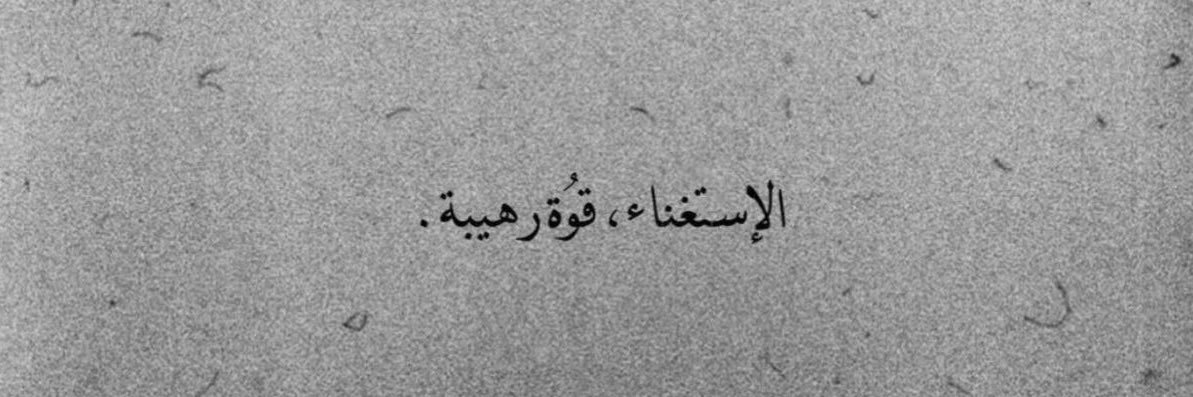 الإستغناء، قوُة رهيبة.